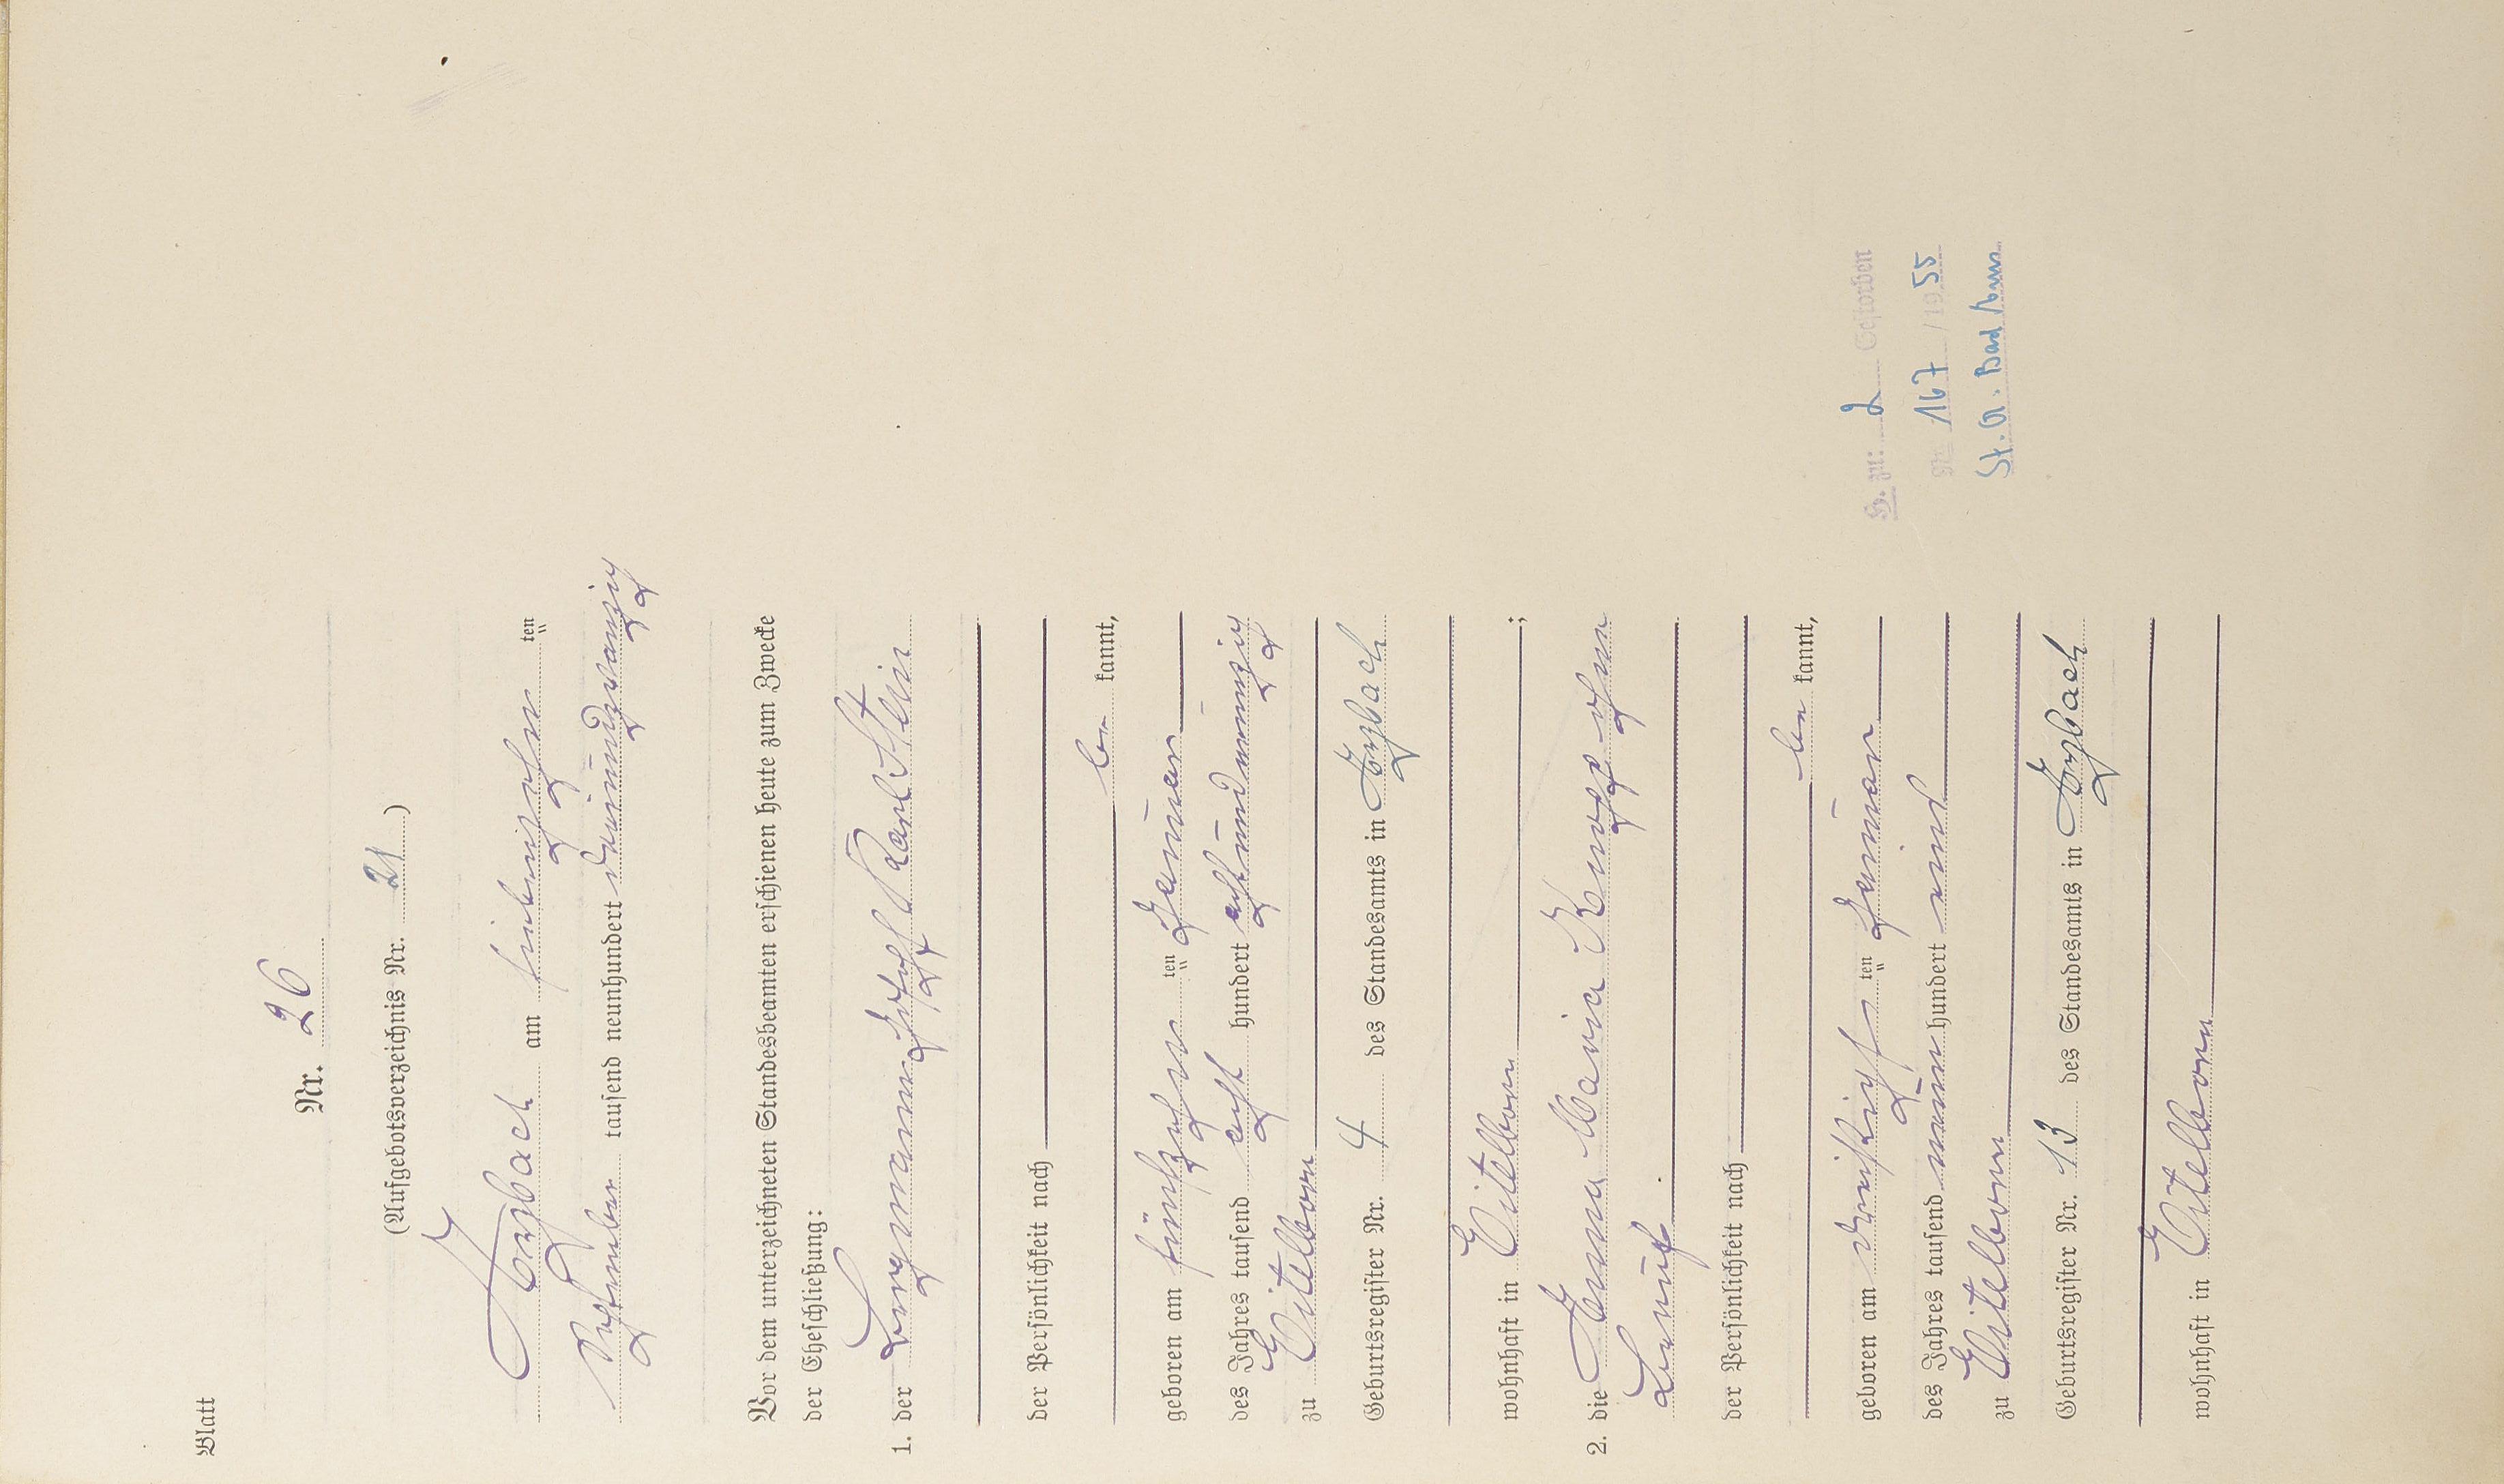 Blatt
Nr. 26
(Aufgebotsverzeichnis Nr. 21)
Arzbach am siebenzehn ten
September tausend neunhundert dreiundzwanzig
Vor dem unterzeichneten Standesbeamten erschienen heute zum Zwecke
der Eheschließung:
1. der Bergmann Josef Karl Stein
der Persönlichkeit nach
be kannt,
geboren am fünfzehn ten Januar
des Jahres tausend acht hundert achtundneunzig
zu Eitelborn
Geburtsregister Nr. 4 des Standesamts in Arzbach
wohnhaft in Eitelborn ;
2. die Anna Maria Knopp ohne
Beruf.
der Persönlichkeit nach
be kannt,
geboren am dreißigs ten Januar
des Jahres tausend neun hundert eins
zu Eitelborn
Geburtsregister Nr. 13 des Standesamts in Arzbach
wohnhaft in Eitelborn
H. zu: 2 Gestorben
Nr. 167 / 1955
St.A. Bad Ems